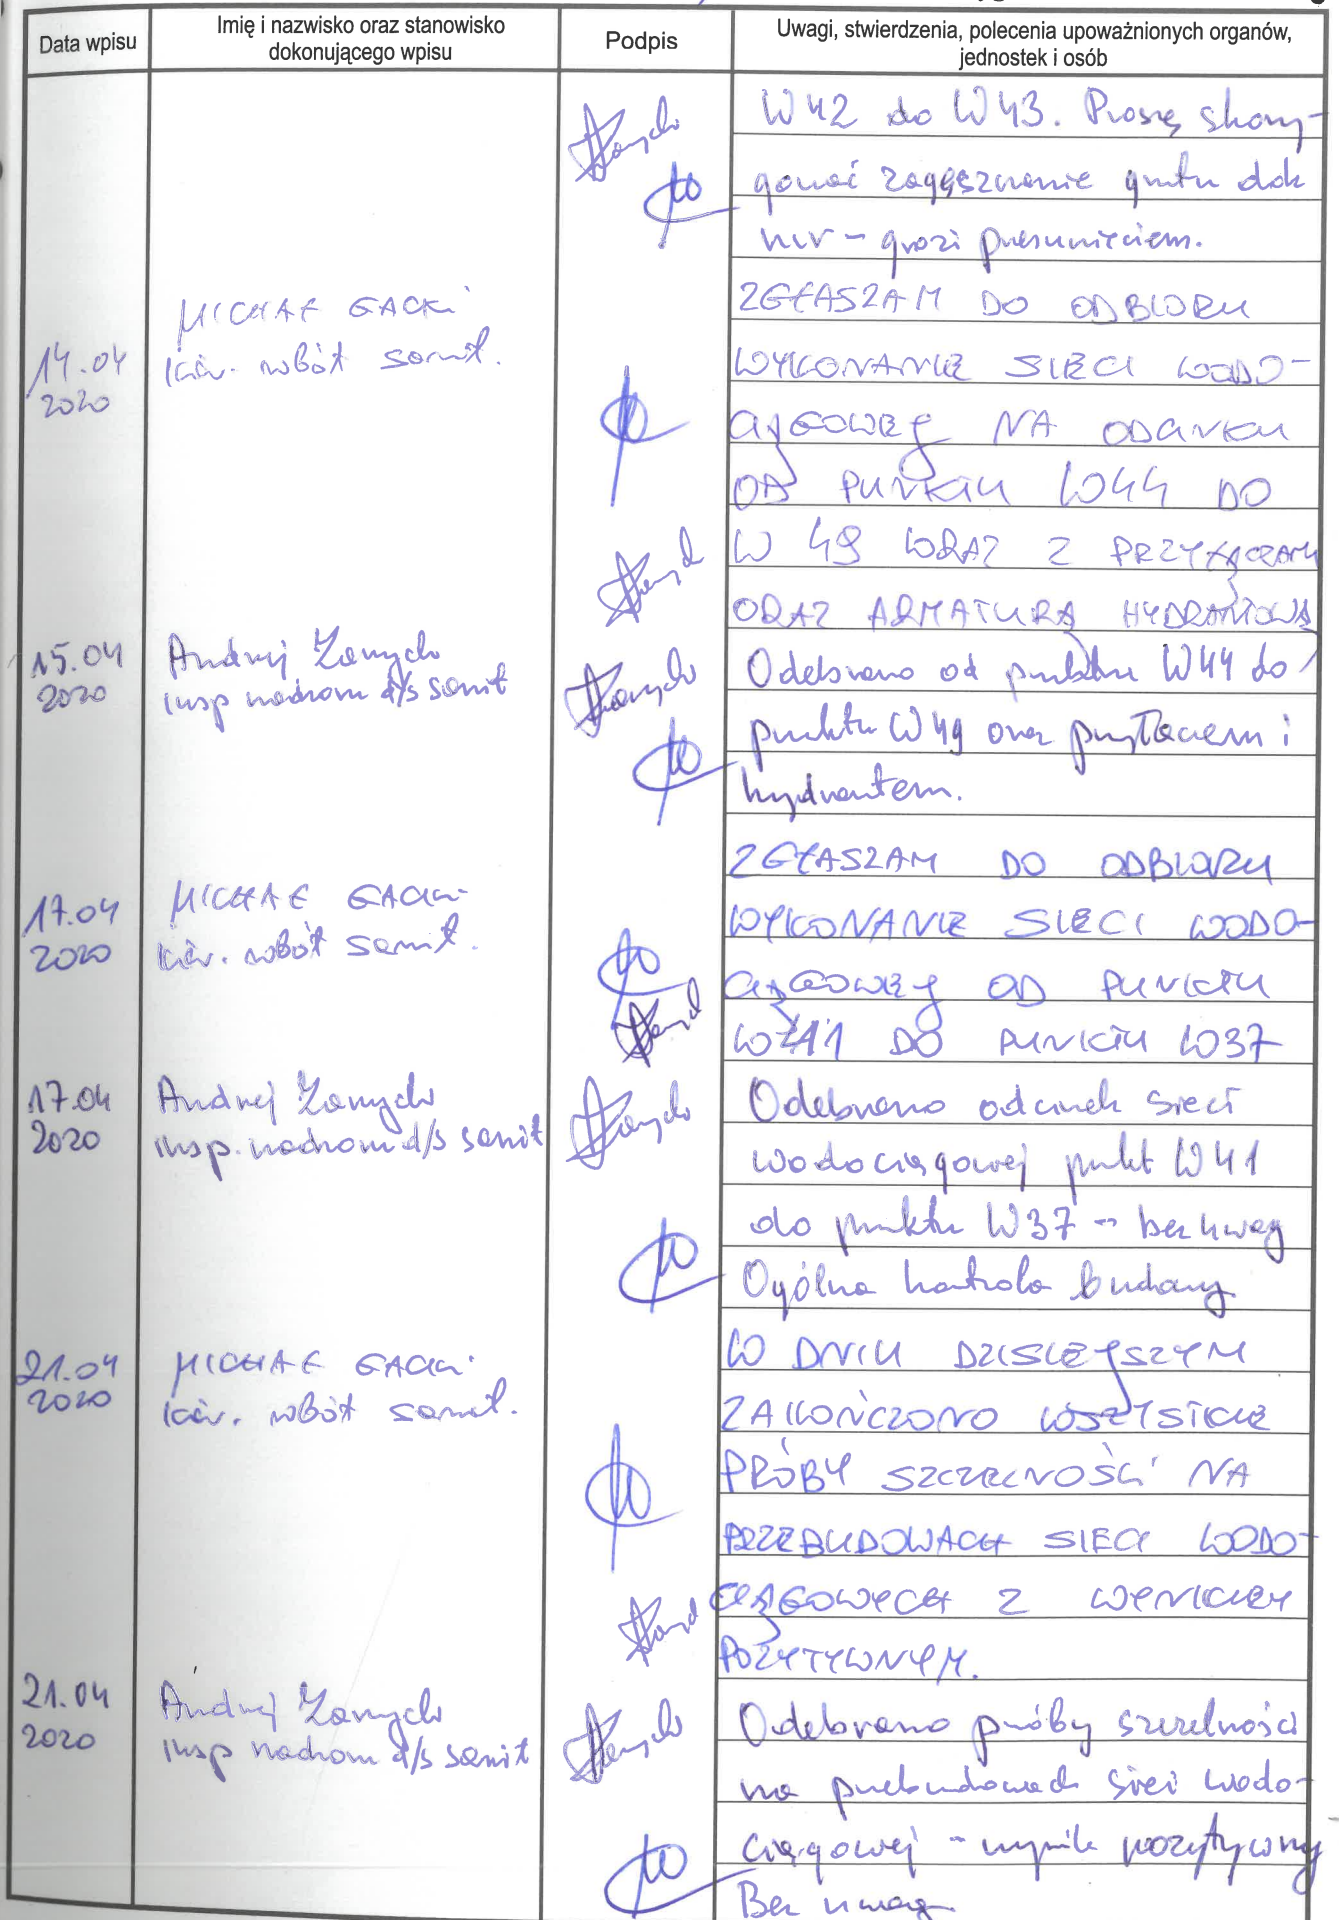 Data wpisu
Imię i nazwisko oraz stanowisko
dokonującego wpisu
Podpis
Uwagi, stwierdzenia, polecenia upoważnionych organów,
jednostek i osób
W42 do W43. Proszę skory-
gować zagęszczenie gruntu dok
nuv - grozi przesunięciem.
14.04
2020
MICHAŁ GACKI
kier. robót sanit.
ZGŁASZAM DO ODBIORU
WYKONANIE SIECI WODO-
CIĄGOWEJ NA ODCINKU
OD PUNKTU W44 DO
W 49 WRAZ Z PRZYŁĄCZAMI
ORAZ ARMATURĄ HYDRANTOWĄ
15.04
2020
Andrzej
insp nadzoru d/s sanit
Odebrano od punktu W44 do
punktu W49 oraz przyłączem i
hydrantem.
17.04
2020
MICHAŁ GACKI
kier. robót sanit.
ZGŁASZAM DO ODBIORU
WYKONANIE SIECI WODO-
CIĄGOWEJ OD PUNKTU
W41 DO PUNKTU W37
17.04
2020
Andrzej
insp. nadzoru d/s sanit
Odebrano odcinek sieci
wodociągowej punkt W41
do punktu W37 - bez uwag
Ogólna kontrola budowy
21.04
2020
MICHAŁ GACKI
kier. robót sanit.
W DNIU DZISIEJSZYM
ZAKOŃCZONO WSZYSTKIE
PRÓBY SZCZELNOŚCI NA
PRZEBUDOWACH SIECI WODO-
CIĄGOWYCH Z WYNIKIEM
POZYTYWNYM.
21.04
2020
Andrzej
insp nadzoru d/s sanit
Odebrano próby szczelności
na przebudowach sieci wodo-
ciągowej - wynik pozytywny
Bez uwag